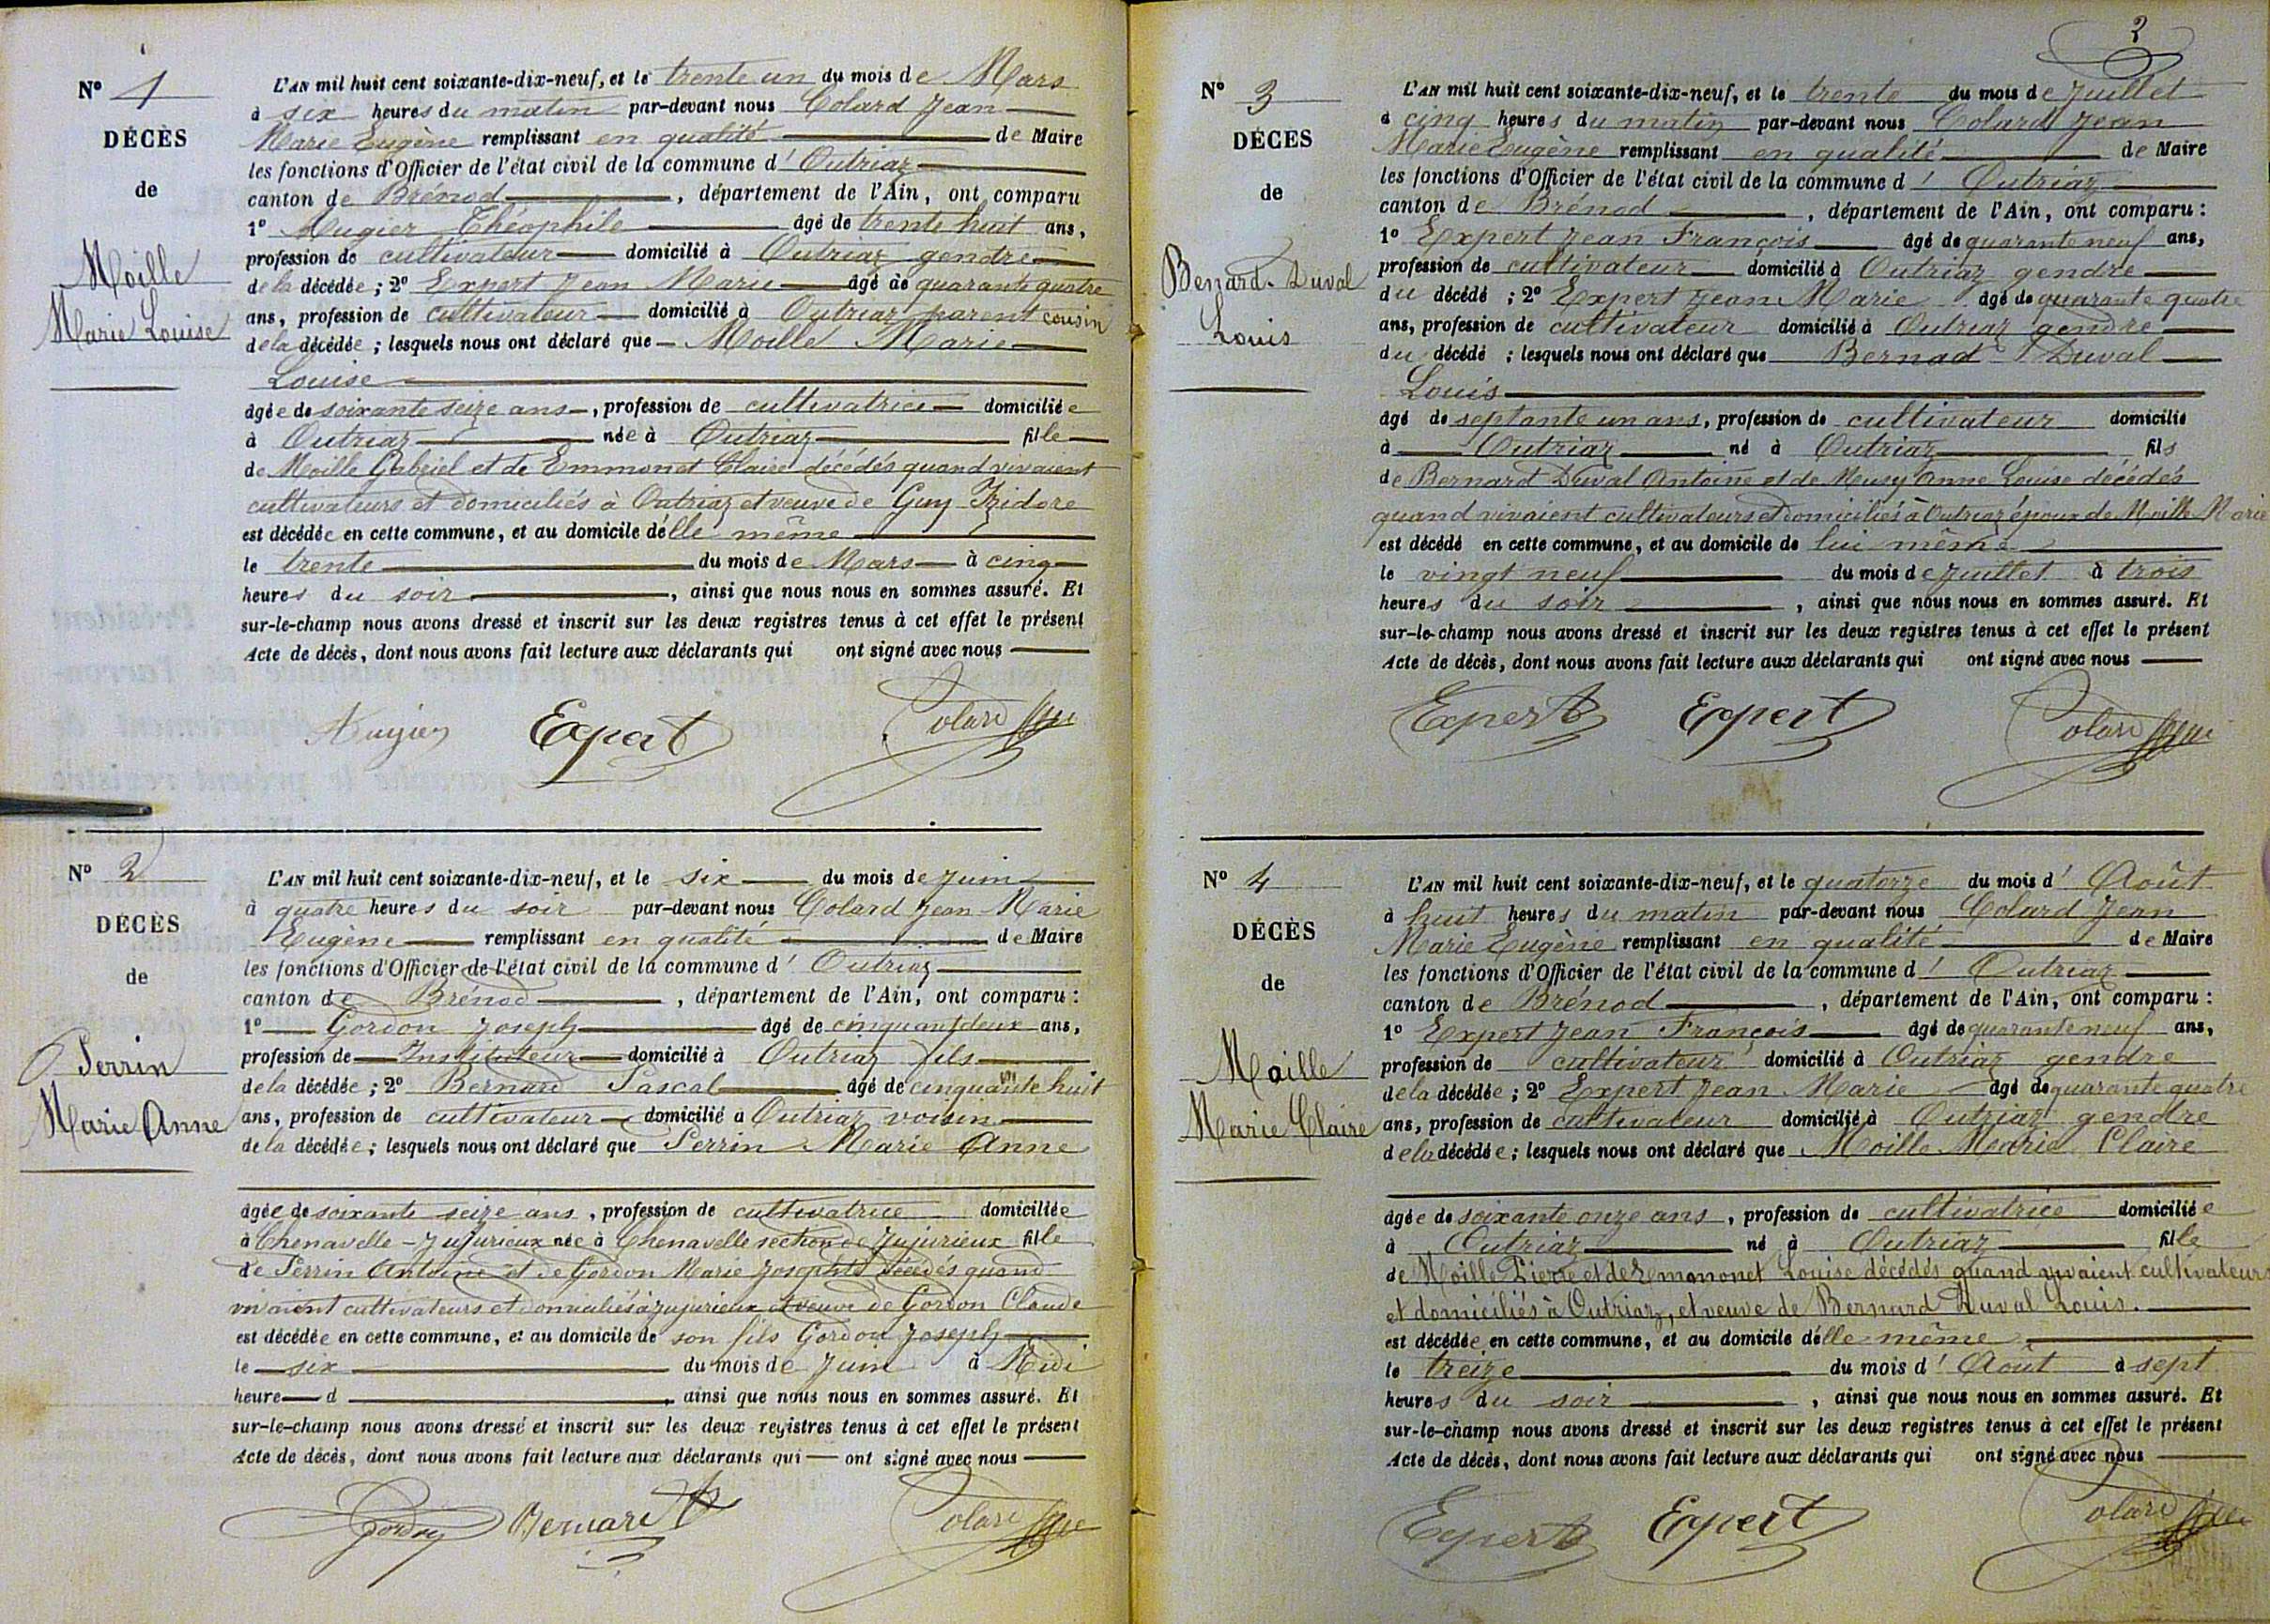 N° 1
DÉCÈS
de
Moille
Marie Louise
L'AN mil huit cent soixante-dix-neuf, et le trente un du mois de Mars
à six heures du matin par-devant nous Colard Jean
Marie Eugène remplissant en qualité de Maire
les fonctions d'Officier de l'état civil de la commune d' Outriaz
canton de Brénod, département de l'Ain, ont comparu
1° Augier Théophile âgé de trente huit ans,
profession de cultivateur domicilié à Outriaz gendre
de la décédée ; 2° Expert Jean Marie âgé de quarante quatre
ans, profession de cultivateur domicilié à Outriaz parent cousin
de la décédée ; lesquels nous ont déclaré que Moille Marie
Louise
âgée de soixante seize ans, profession de cultivatrice domiciliée
à Outriaz née à Outriaz fille
de Moille Gabriel et de Emmonet Claire décédés quand vivaient
cultivateurs et domiciliés à Outriaz et veuve de Guy Izidore
est décédée en cette commune, et au domicile délle même
le trente du mois de Mars à cinq
heures du soir, ainsi que nous nous en sommes assuré. Et
sur-le-champ nous avons dressé et inscrit sur les deux registres tenus à cet effet le présent
Acte de décès, dont nous avons fait lecture aux déclarants qui ont signé avec nous
Augier Expert Colard
N° 2
DÉCÈS
de
Perrin
Marie Anne
L'AN mil huit cent soixante-dix-neuf, et le six du mois de Juin
à quatre heures du soir par-devant nous Colard Jean Marie
Eugène remplissant en qualité de Maire
les fonctions d'Officier de l'état civil de la commune d' Outriaz
canton de Brénod, département de l'Ain, ont comparu :
1° Gordon Joseph âgé de cinquant deux ans,
profession de Instituteur domicilié à Outriaz fils
de la décédée ; 2° Bernard Pascal âgé de cinquante huit
ans, profession de cultivateur domicilié à Outriaz voisin
de la décédée ; lesquels nous ont déclaré que Perrin Marie Anne
âgée de soixante seize ans, profession de cultivatrice domiciliée
à Chenavelle - Jujurieux née à Chenavelle section de Jujurieux fille
de Perrin Antoine et de Gordon Marie Josephte décédés quand
vivaient cultivateurs et domiciliés à Jujurieux et veuve de Gordon Claude
est décédée en cette commune, et au domicile de son fils Gordon Joseph
le six du mois de Juin à Midi
heure d, ainsi que nous nous en sommes assuré. Et
sur-le-champ nous avons dressé et inscrit sur les deux registres tenus à cet effet le présent
Acte de décès, dont nous avons fait lecture aux déclarants qui ont signé avec nous
Gordon Bernard Colard
2
N° 3
DÉCÈS
de
Benard-Duval
Louis
L'AN mil huit cent soixante-dix-neuf, et le trente du mois de Juillet
à cinq heures du matin par-devant nous Colard Jean
Marie Eugène remplissant en qualité de Maire
les fonctions d'Officier de l'état civil de la commune d' Outriaz
canton de Brénod, département de l'Ain, ont comparu :
1° Expert Jean François âgé de quarante neuf ans,
profession de cultivateur domicilié à Outriaz gendre
du décédé ; 2° Expert Jean Marie âgé de quarante quatre
ans, profession de cultivateur domicilié à Outriaz gendre
du décédé ; lesquels nous ont déclaré que Bernad Duval
Louis
âgé de septante un ans, profession de cultivateur domicilié
à Outriaz né à Outriaz fils
de Bernard Duval Antoine et de Meusy Anne Louise décédés
quand vivaient cultivateurs et domiciliés à Outriaz époux de Moille Marie
est décédé en cette commune, et au domicile de lui même
le vingt neuf du mois de Juillet à trois
heures du soir, ainsi que nous nous en sommes assuré. Et
sur-le-champ nous avons dressé et inscrit sur les deux registres tenus à cet effet le présent
Acte de décès, dont nous avons fait lecture aux déclarants qui ont signé avec nous
Expert Expert Colard
N° 4
DÉCÈS
de
Moille
Marie Claire
L'AN mil huit cent soixante-dix-neuf, et le quatorze du mois d' Août
à huit heures du matin par-devant nous Colard Jean
Marie Eugène remplissant en qualité de Maire
les fonctions d'Officier de l'état civil de la commune d' Outriaz
canton de Brénod, département de l'Ain, ont comparu :
1° Expert Jean François âgé de quarante neuf ans,
profession de cultivateur domicilié à Outriaz gendre
de la décédée ; 2° Expert Jean Marie âgé de quarante quatre
ans, profession de cultivateur domicilié à Outriaz gendre
de la décédée ; lesquels nous ont déclaré que Moille Marie Claire
âgée de soixante onze ans, profession de cultivatrice domiciliée
à Outriaz né à Outriaz fille
de Moille Pierre et de Emmonet Louise décédés quand vivaient cultivateurs
et domiciliés à Outriaz, et veuve de Bernard Duval Louis.
est décédée en cette commune, et au domicile délle même
le treize du mois d' Août à sept
heures du soir, ainsi que nous nous en sommes assuré. Et
sur-le-champ nous avons dressé et inscrit sur les deux registres tenus à cet effet le présent
Acte de décès, dont nous avons fait lecture aux déclarants qui ont signé avec nous
Expert Expert Colard